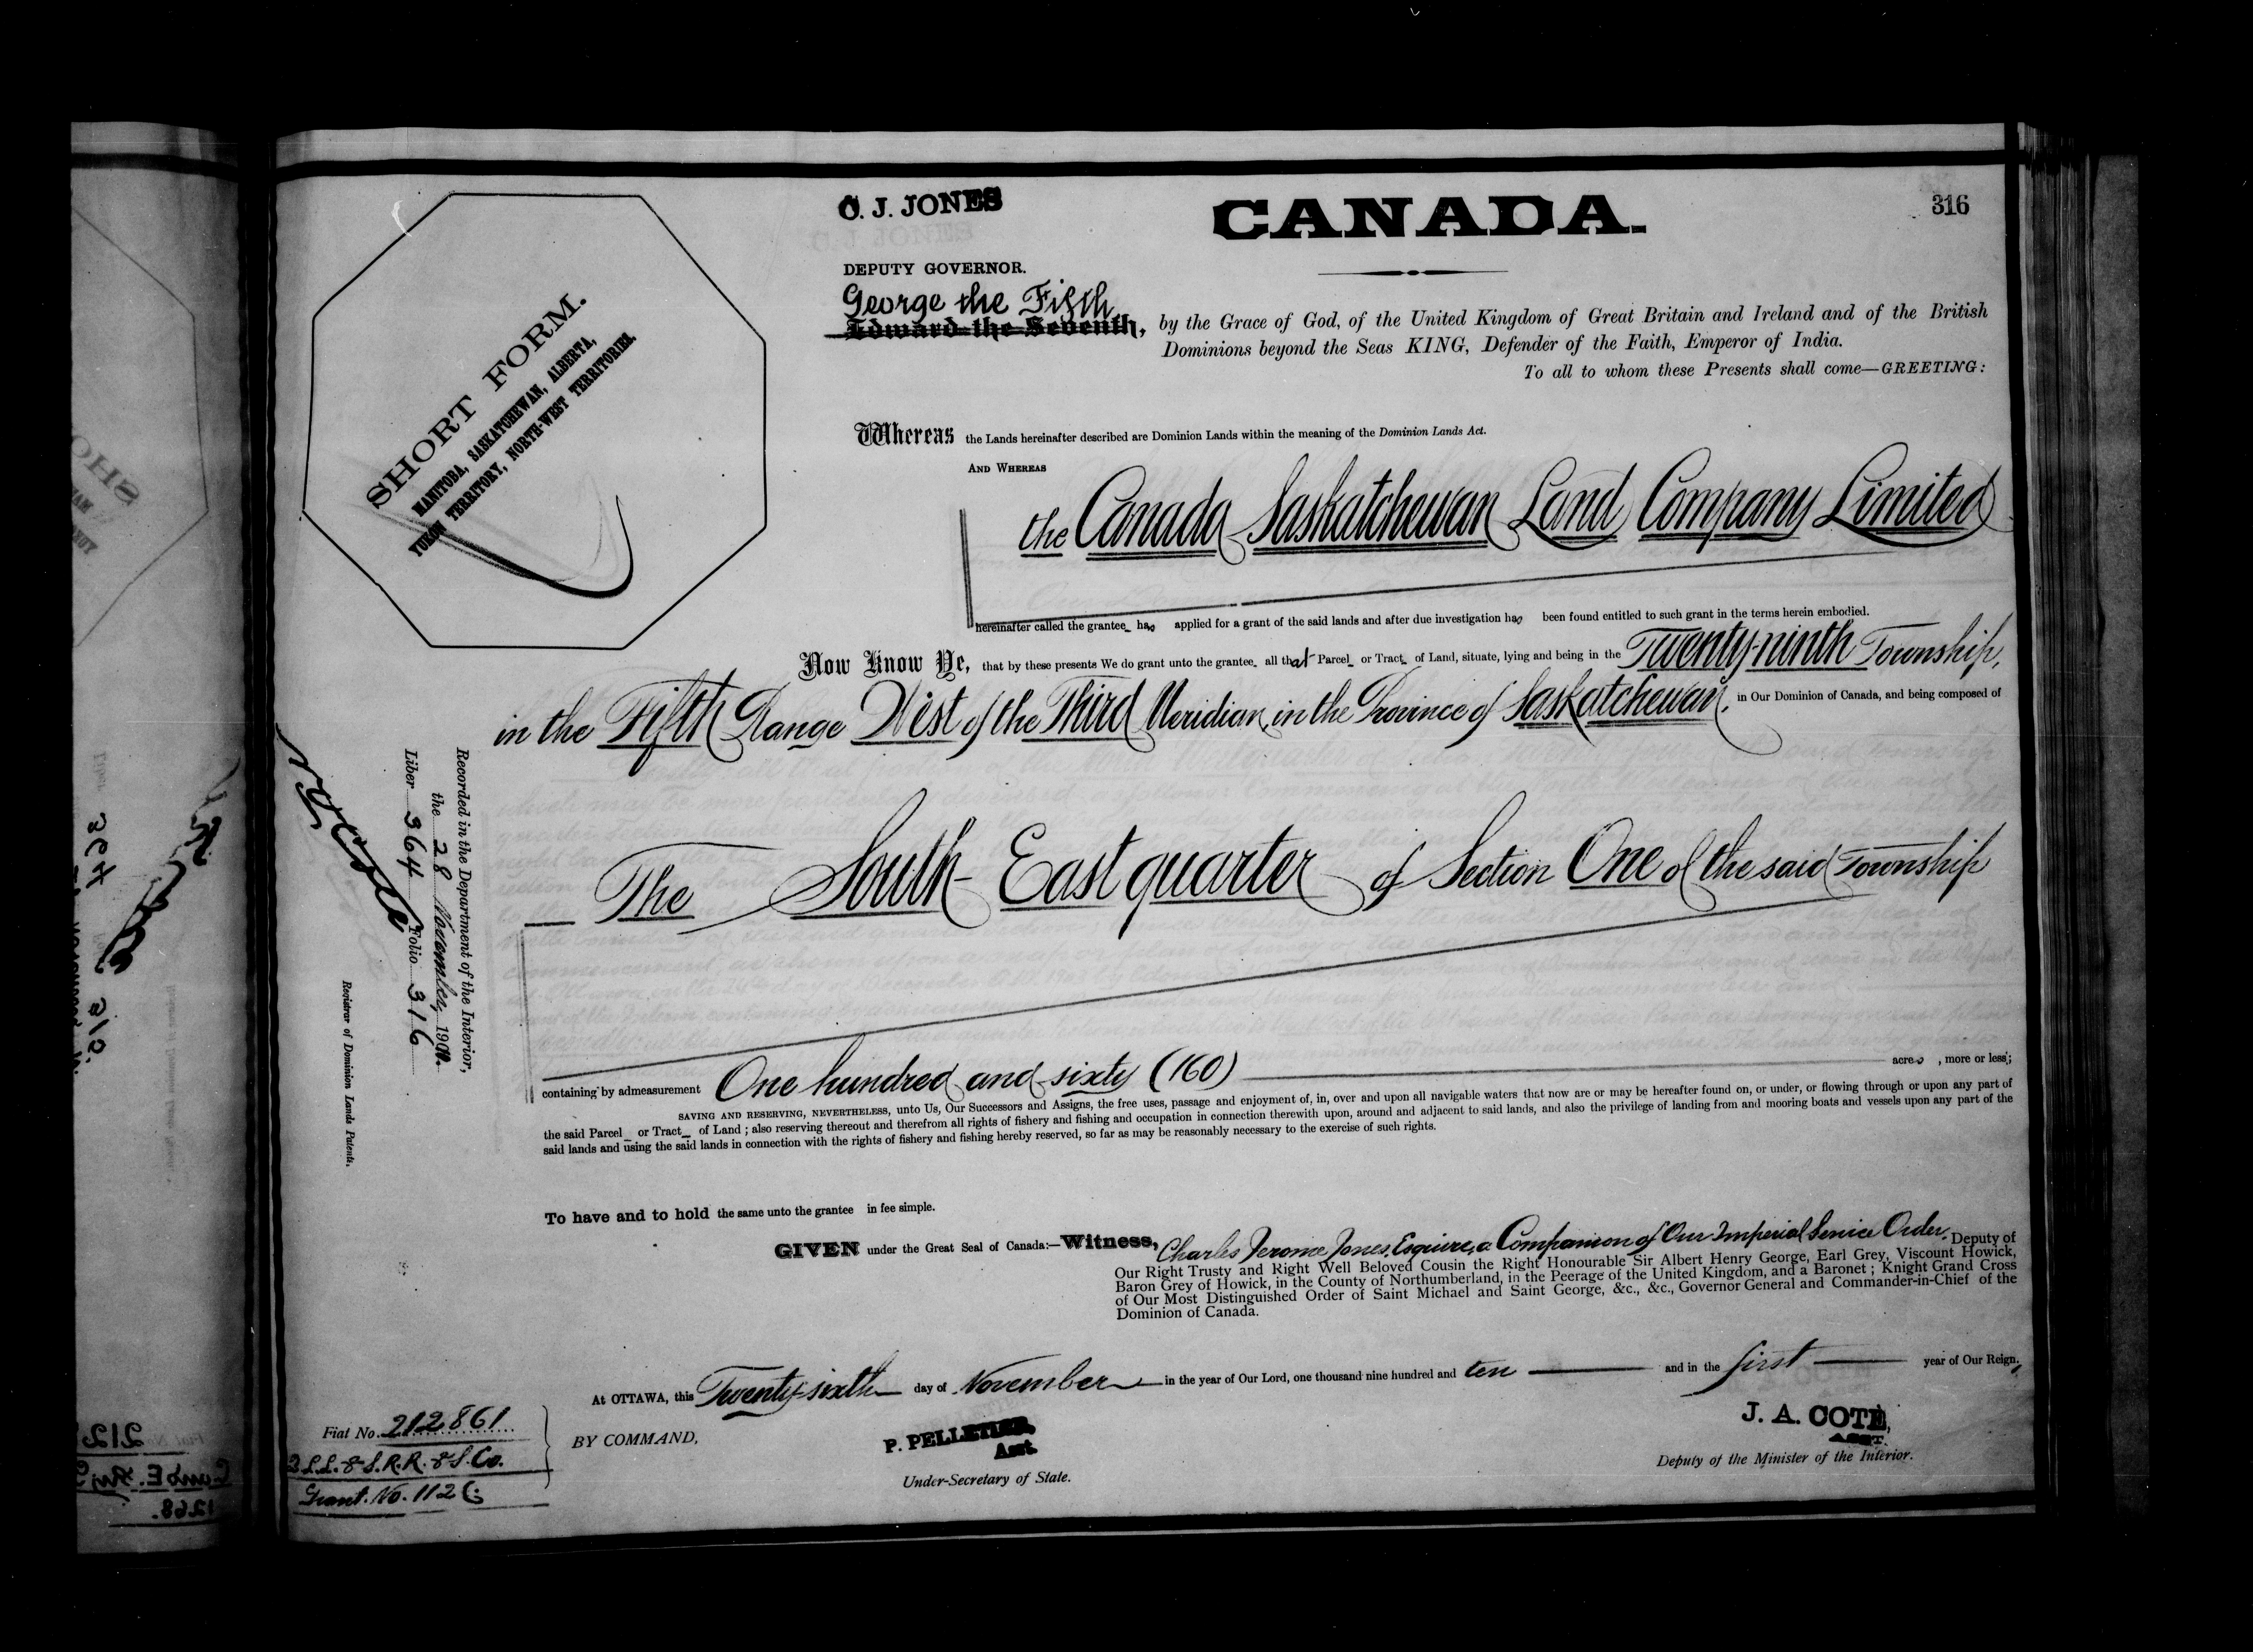 316
C. J. JONES
CANADA.
DEPUTY GOVERNOR.
George the Fifth
Edward the Seventh, by the Grace of God, of the United Kingdom of Great Britain and Ireland and of the British
Dominions beyond the Seas KING, Defender of the Faith, Emperor of India.
To all to whom these Presents shall come—GREETING:
SHORT FORM.
MANITOBA, SASKATCHEWAN, ALBERTA,
YUKON TERRITORY, NORTH-WEST TERRITORIES.
Whereas the Lands hereinafter described are Dominion Lands within the meaning of the Dominion Lands Act.
AND WHEREAS
the Canada Saskatchewan Land Company Limited
hereinafter called the grantee has applied for a grant of the said lands and after due investigation has been found entitled to such grant in the terms herein embodied.
Now Know Ye, that by these presents We do grant unto the grantee all that Parcel or Tract of Land, situate, lying and being in the Twenty-ninth Township,
in the Fifth Range West of the Third Meridian, in the Province of Saskatchewan, in Our Dominion of Canada, and being composed of
The South-East quarter of Section One of the said Township
containing by admeasurement One hundred and sixty (160) acres, more or less;
SAVING AND RESERVING, NEVERTHELESS, unto Us, Our Successors and Assigns, the free uses, passage and enjoyment of, in, over and upon all navigable waters that now are or may be hereafter found on, or under, or flowing through or upon any part of
the said Parcel or Tract of Land; also reserving thereout and therefrom all rights of fishery and fishing and occupation in connection therewith upon, around and adjacent to said lands, and also the privilege of landing from and mooring boats and vessels upon any part of the
said lands and using the said lands in connection with the rights of fishery and fishing hereby reserved, so far as may be reasonably necessary to the exercise of such rights.
To have and to hold the same unto the grantee in fee simple.
GIVEN under the Great Seal of Canada:—Witness, Charles Jerome Jones, Esquire, a Companion of Our Imperial Service Order, Deputy of
Our Right Trusty and Right Well Beloved Cousin the Right Honourable Sir Albert Henry George, Earl Grey, Viscount Howick,
Baron Grey of Howick, in the County of Northumberland, in the Peerage of the United Kingdom, and a Baronet; Knight Grand Cross
of Our Most Distinguished Order of Saint Michael and Saint George, &c., &c., Governor General and Commander-in-Chief of the
Dominion of Canada.
At OTTAWA, this Twenty-sixth day of November in the year of Our Lord, one thousand nine hundred and ten and in the first year of Our Reign.
BY COMMAND,
P. PELLETIER,
Asst.
Under-Secretary of State.
J. A. COTE,
ASST.
Deputy of the Minister of the Interior.
Recorded in the Department of the Interior,
the 28 November, 1910.
Liber 364 Folio 316
Registrar of Dominion Lands Patents.
Fiat No. 212861
L.L. & S.R.R. & S. Co.
Grant. No. 112